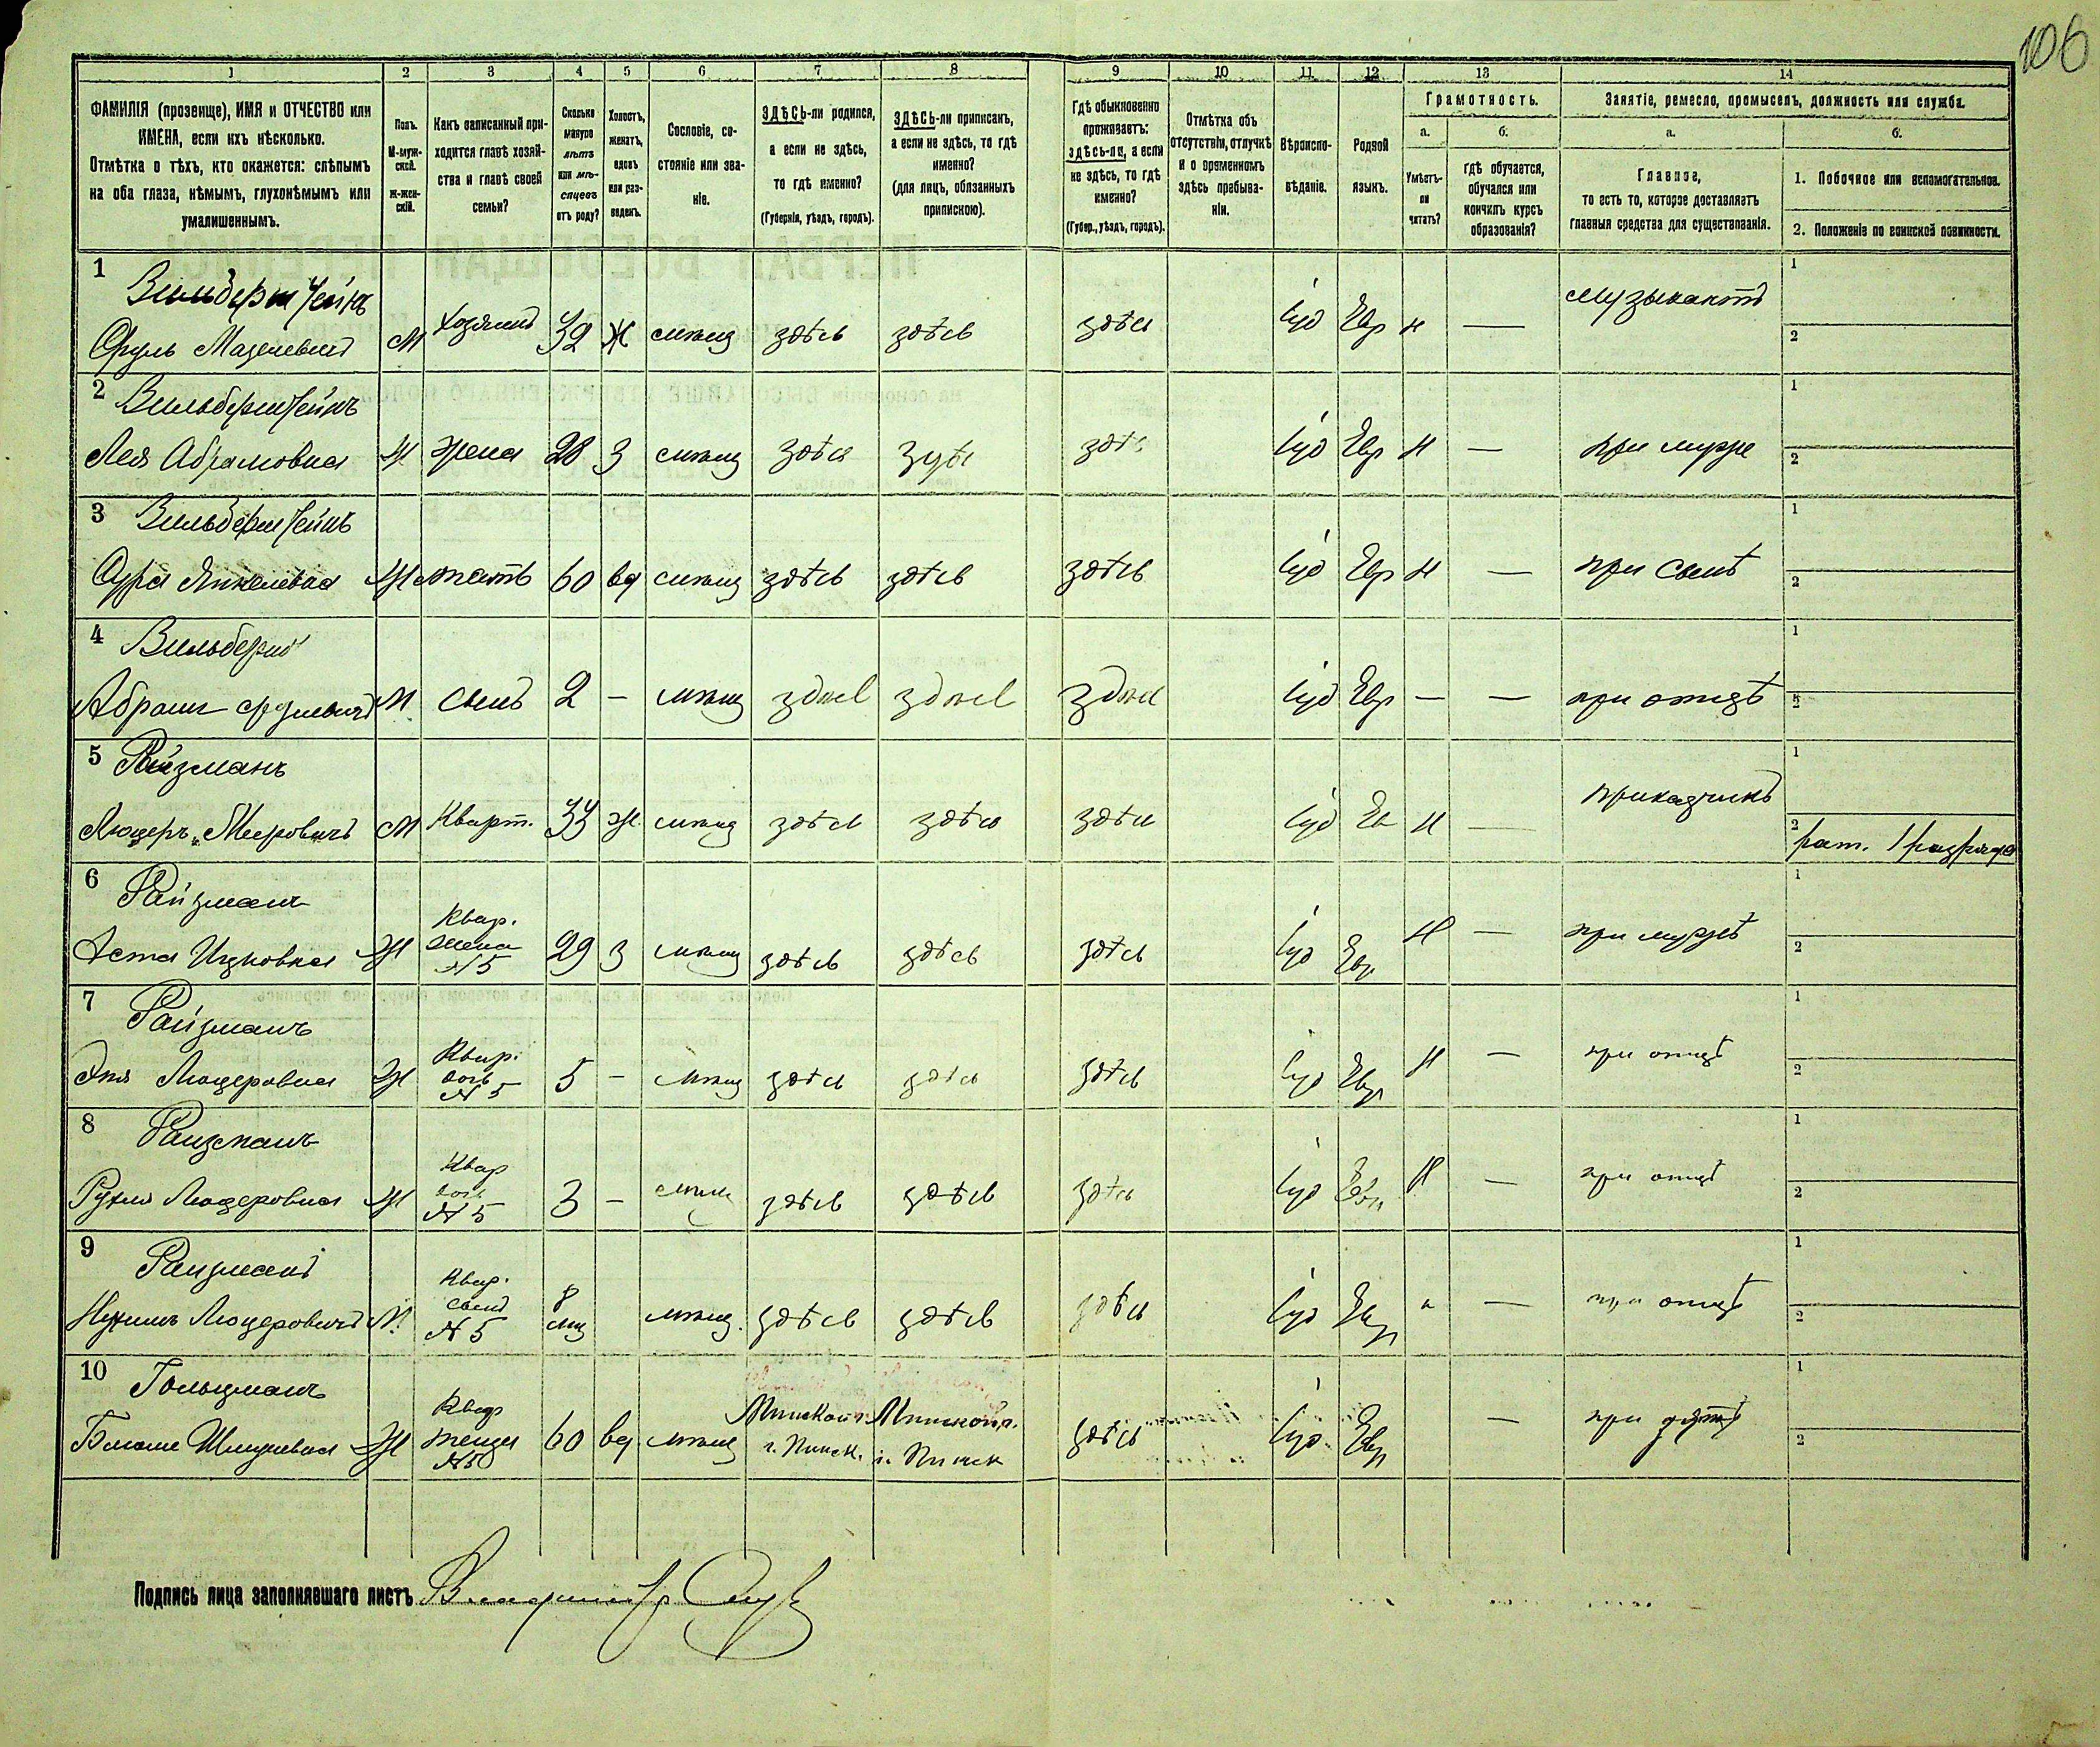 106
1 2 3 4 5 6 7 8 9 10 11 12 13 14
ФАМИЛІЯ (прозвище), ИМЯ и ОТЧЕСТВО или ИМЕНА, если ихъ нѣсколько.
Отмѣтка о тѣхъ, кто окажется: слѣпымъ на оба глаза, нѣмымъ, глухонѣмымъ или умалишеннымъ.
Полъ.
М-мужской.
Ж-женскій.
Какъ записанный приходится главѣ хозяйства и главѣ своей семьи?
Сколько минуло лѣтъ или мѣсяцевъ отъ роду?
Холостъ, женатъ, вдовъ или разведенъ.
Сословіе, состояніе или званіе.
ЗДѢСЬ-ли родился, а если не здѣсь, то гдѣ именно?
(Губернія, уѣздъ, городъ).
ЗДѢСЬ-ли приписанъ, а если не здѣсь, то гдѣ именно?
(для лицъ, обязанныхъ припискою).
Гдѣ обыкновенно проживаетъ: здѣсь-ли, а если не здѣсь, то гдѣ именно?
(Губер., уѣздъ, городъ).
Отмѣтка объ отсутствіи, отлучкѣ и о временномъ здѣсь пребываніи.
Вѣроисповѣданіе.
Родной языкъ.
Грамотность.
а.
Умѣетъ-ли читать?
б.
Гдѣ обучается, обучался или кончилъ курсъ образованія?
Занятіе, ремесло, промыселъ, должность или служба.
а.
Главное,
то есть то, которое доставляетъ главныя средства для существованія.
б.
1. Побочное или вспомогательное.
2. Положеніе по воинской повинности.
1 Вильберштейнъ
Сруль М хозяинъ 32 Ж мѣщ здѣсь здѣсь здѣсь іуд Евр н — музыкантъ 1 2
2 Вильберштейнъ
Лея Абрамовна Ж жена 28 З мѣщ здѣсь здѣсь здѣсь іуд Евр н — при мужѣ 1 2
3 Вильберштейнъ
Сура Янкелевна Ж мать 60 вд мѣщ здѣсь здѣсь здѣсь іуд Евр н — при сынѣ 1 2
4
Абрамъ Срулевичъ М сынъ 2 — мѣщ здѣсь здѣсь здѣсь іуд Евр — — при отцѣ 1 2
5 Райзманъ
Мееровичъ М Кварт. 33 ж мѣщ здѣсь здѣсь здѣсь іуд Ев н — прикащикъ 1 2 рат. 1 разряда
6 Райзманъ
Ицковна Ж Квар. жена № 5 29 З мѣщ здѣсь здѣсь здѣсь іуд Евр н — при мужѣ 1 2
7 Райзманъ
Ж Квар. дочь № 5 5 — мѣщ здѣсь здѣсь здѣсь іуд Евр н — при отцѣ 1 2
8 Райзманъ
Рухля Ж Квар дочь № 5 3 — мѣщ здѣсь здѣсь здѣсь іуд Евр н — при отцѣ 1 2
9 Райзманъ
М Квар. сынъ № 5 8 мѣщ здѣсь здѣсь здѣсь іуд Евр н — при отцѣ 1 2
10 Гольцманъ
Ж Квар теща № 5 60 вд мѣщ Минской г. г. Пинск. Минской г. г. Пинск здѣсь іуд Евр — при 1 2
Подпись лица заполнявшаго листъ